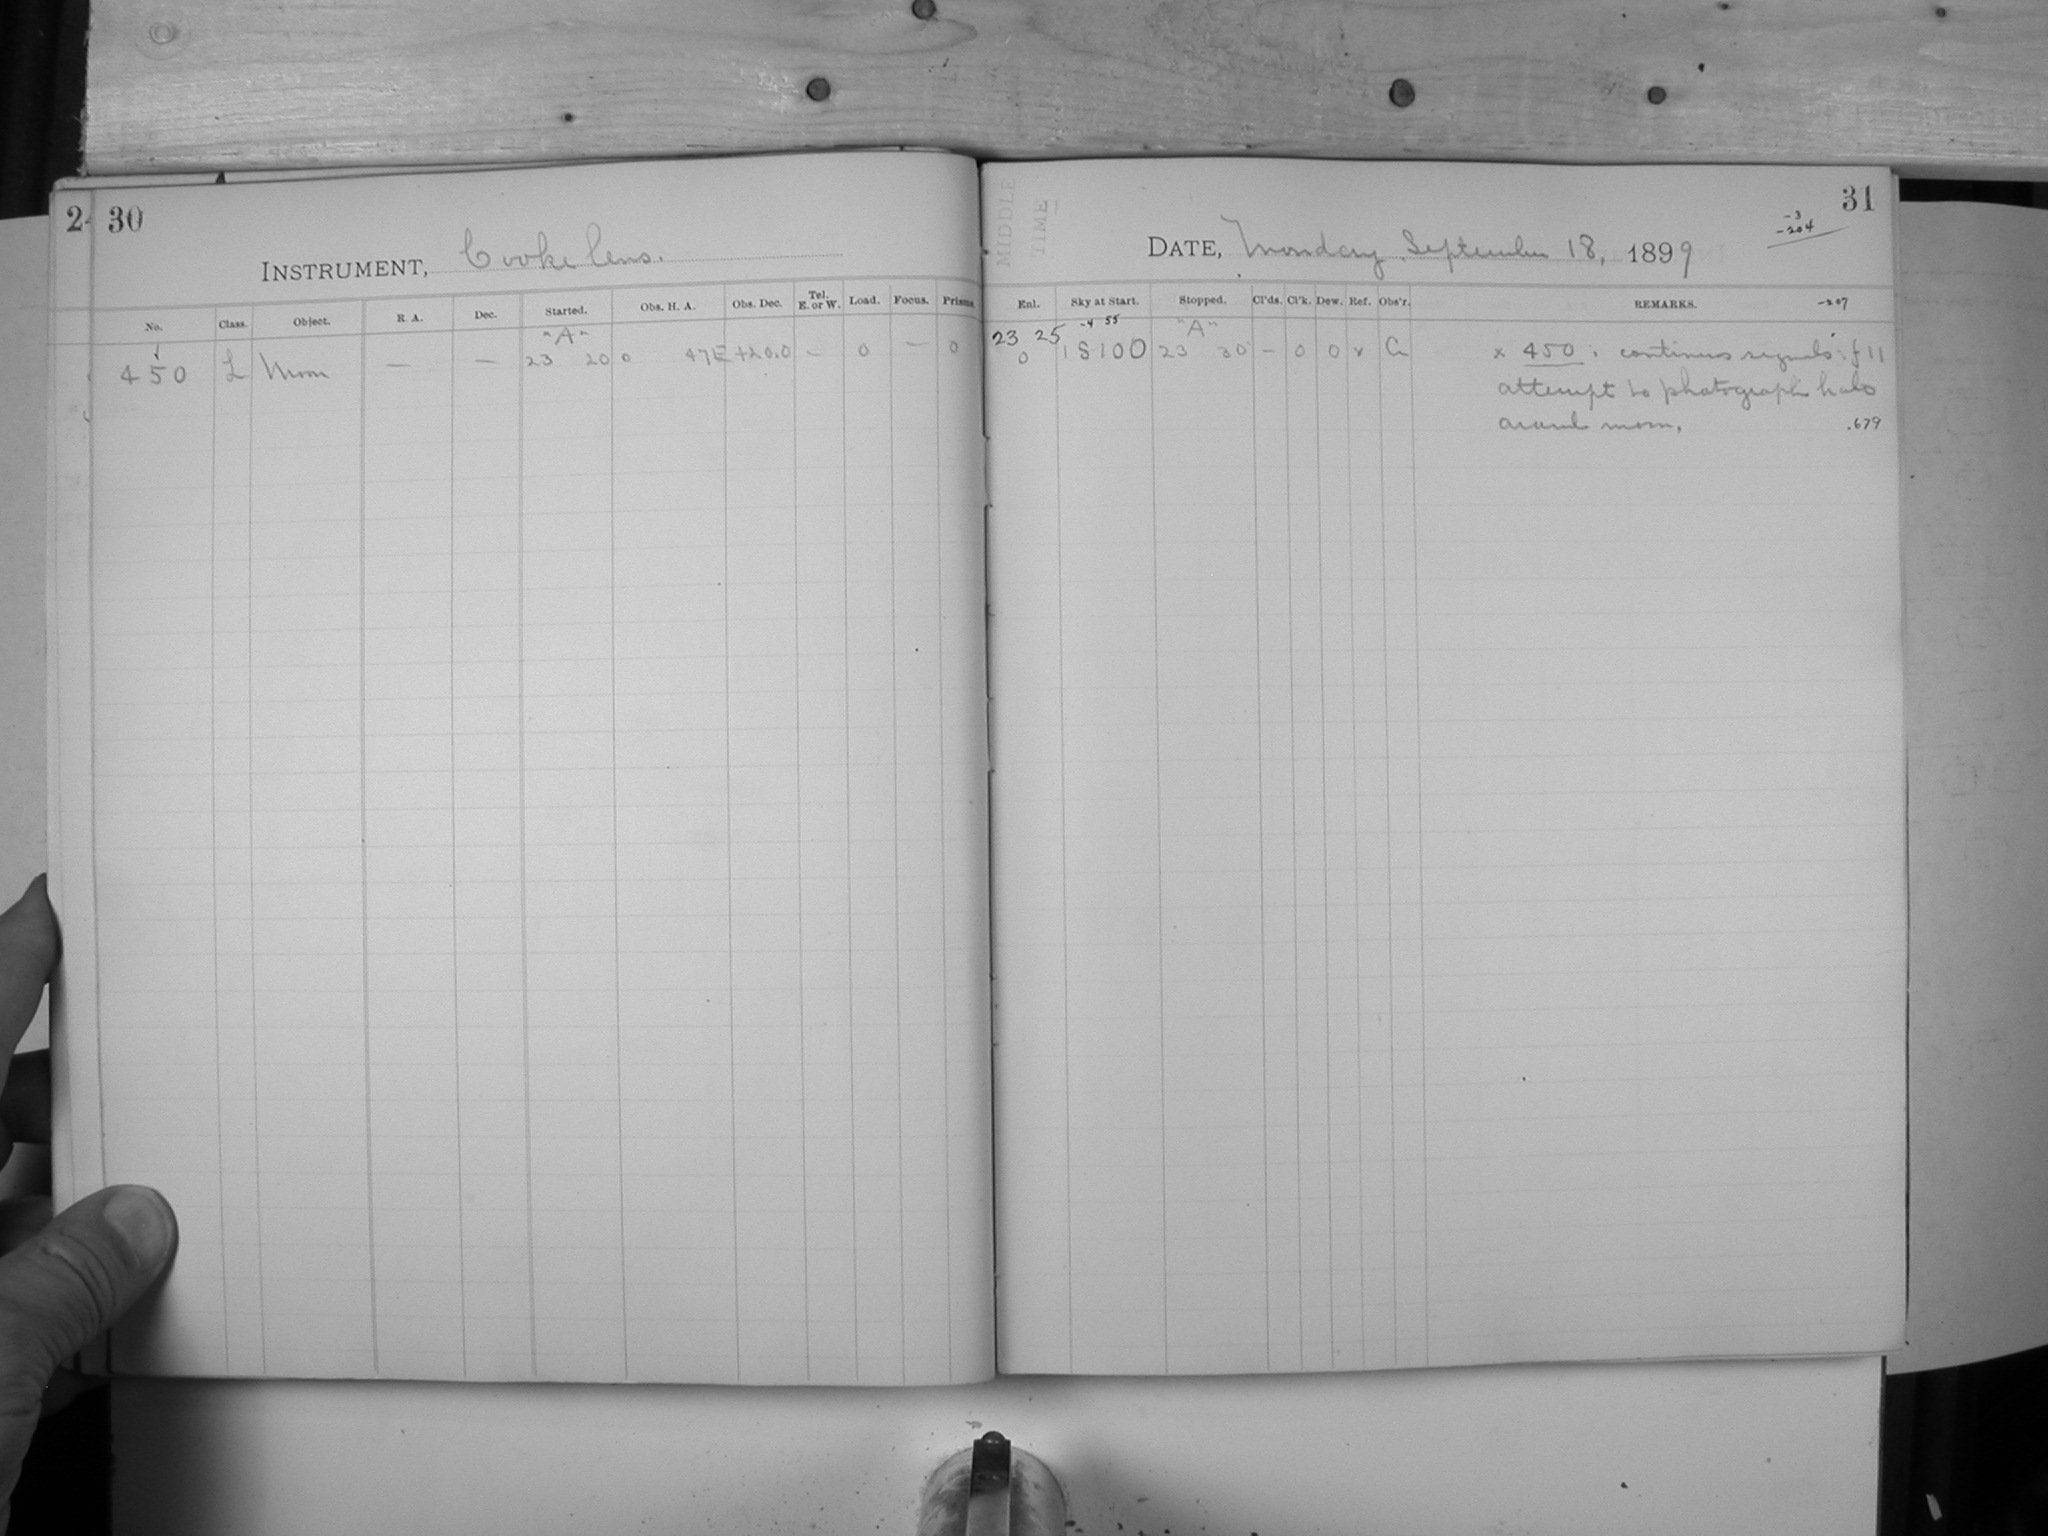 24 30
INSTRUMENT, Cooke lens.
No. Class. Object. R. A. Dec. Started. Obs. H. A. Obs. Dec. Tel. E. or W. Load. Focus. Prisms.
"A"
450 L Moon — — 23 20 0 47E +20.0 — 0 — 0
MIDDLE TIME
31
-3
-204
DATE, Monday September 18, 1899
Enl. Sky at Start. Stopped. Cl'ds. Cl'k. Dew. Ref. Obs'r. REMARKS. -207
-4 55 "A"
23 25
0 1 S 100 23 30 — 0 0 v x 450: continuous : f 11
attempt to photograph halo
around moon. .679